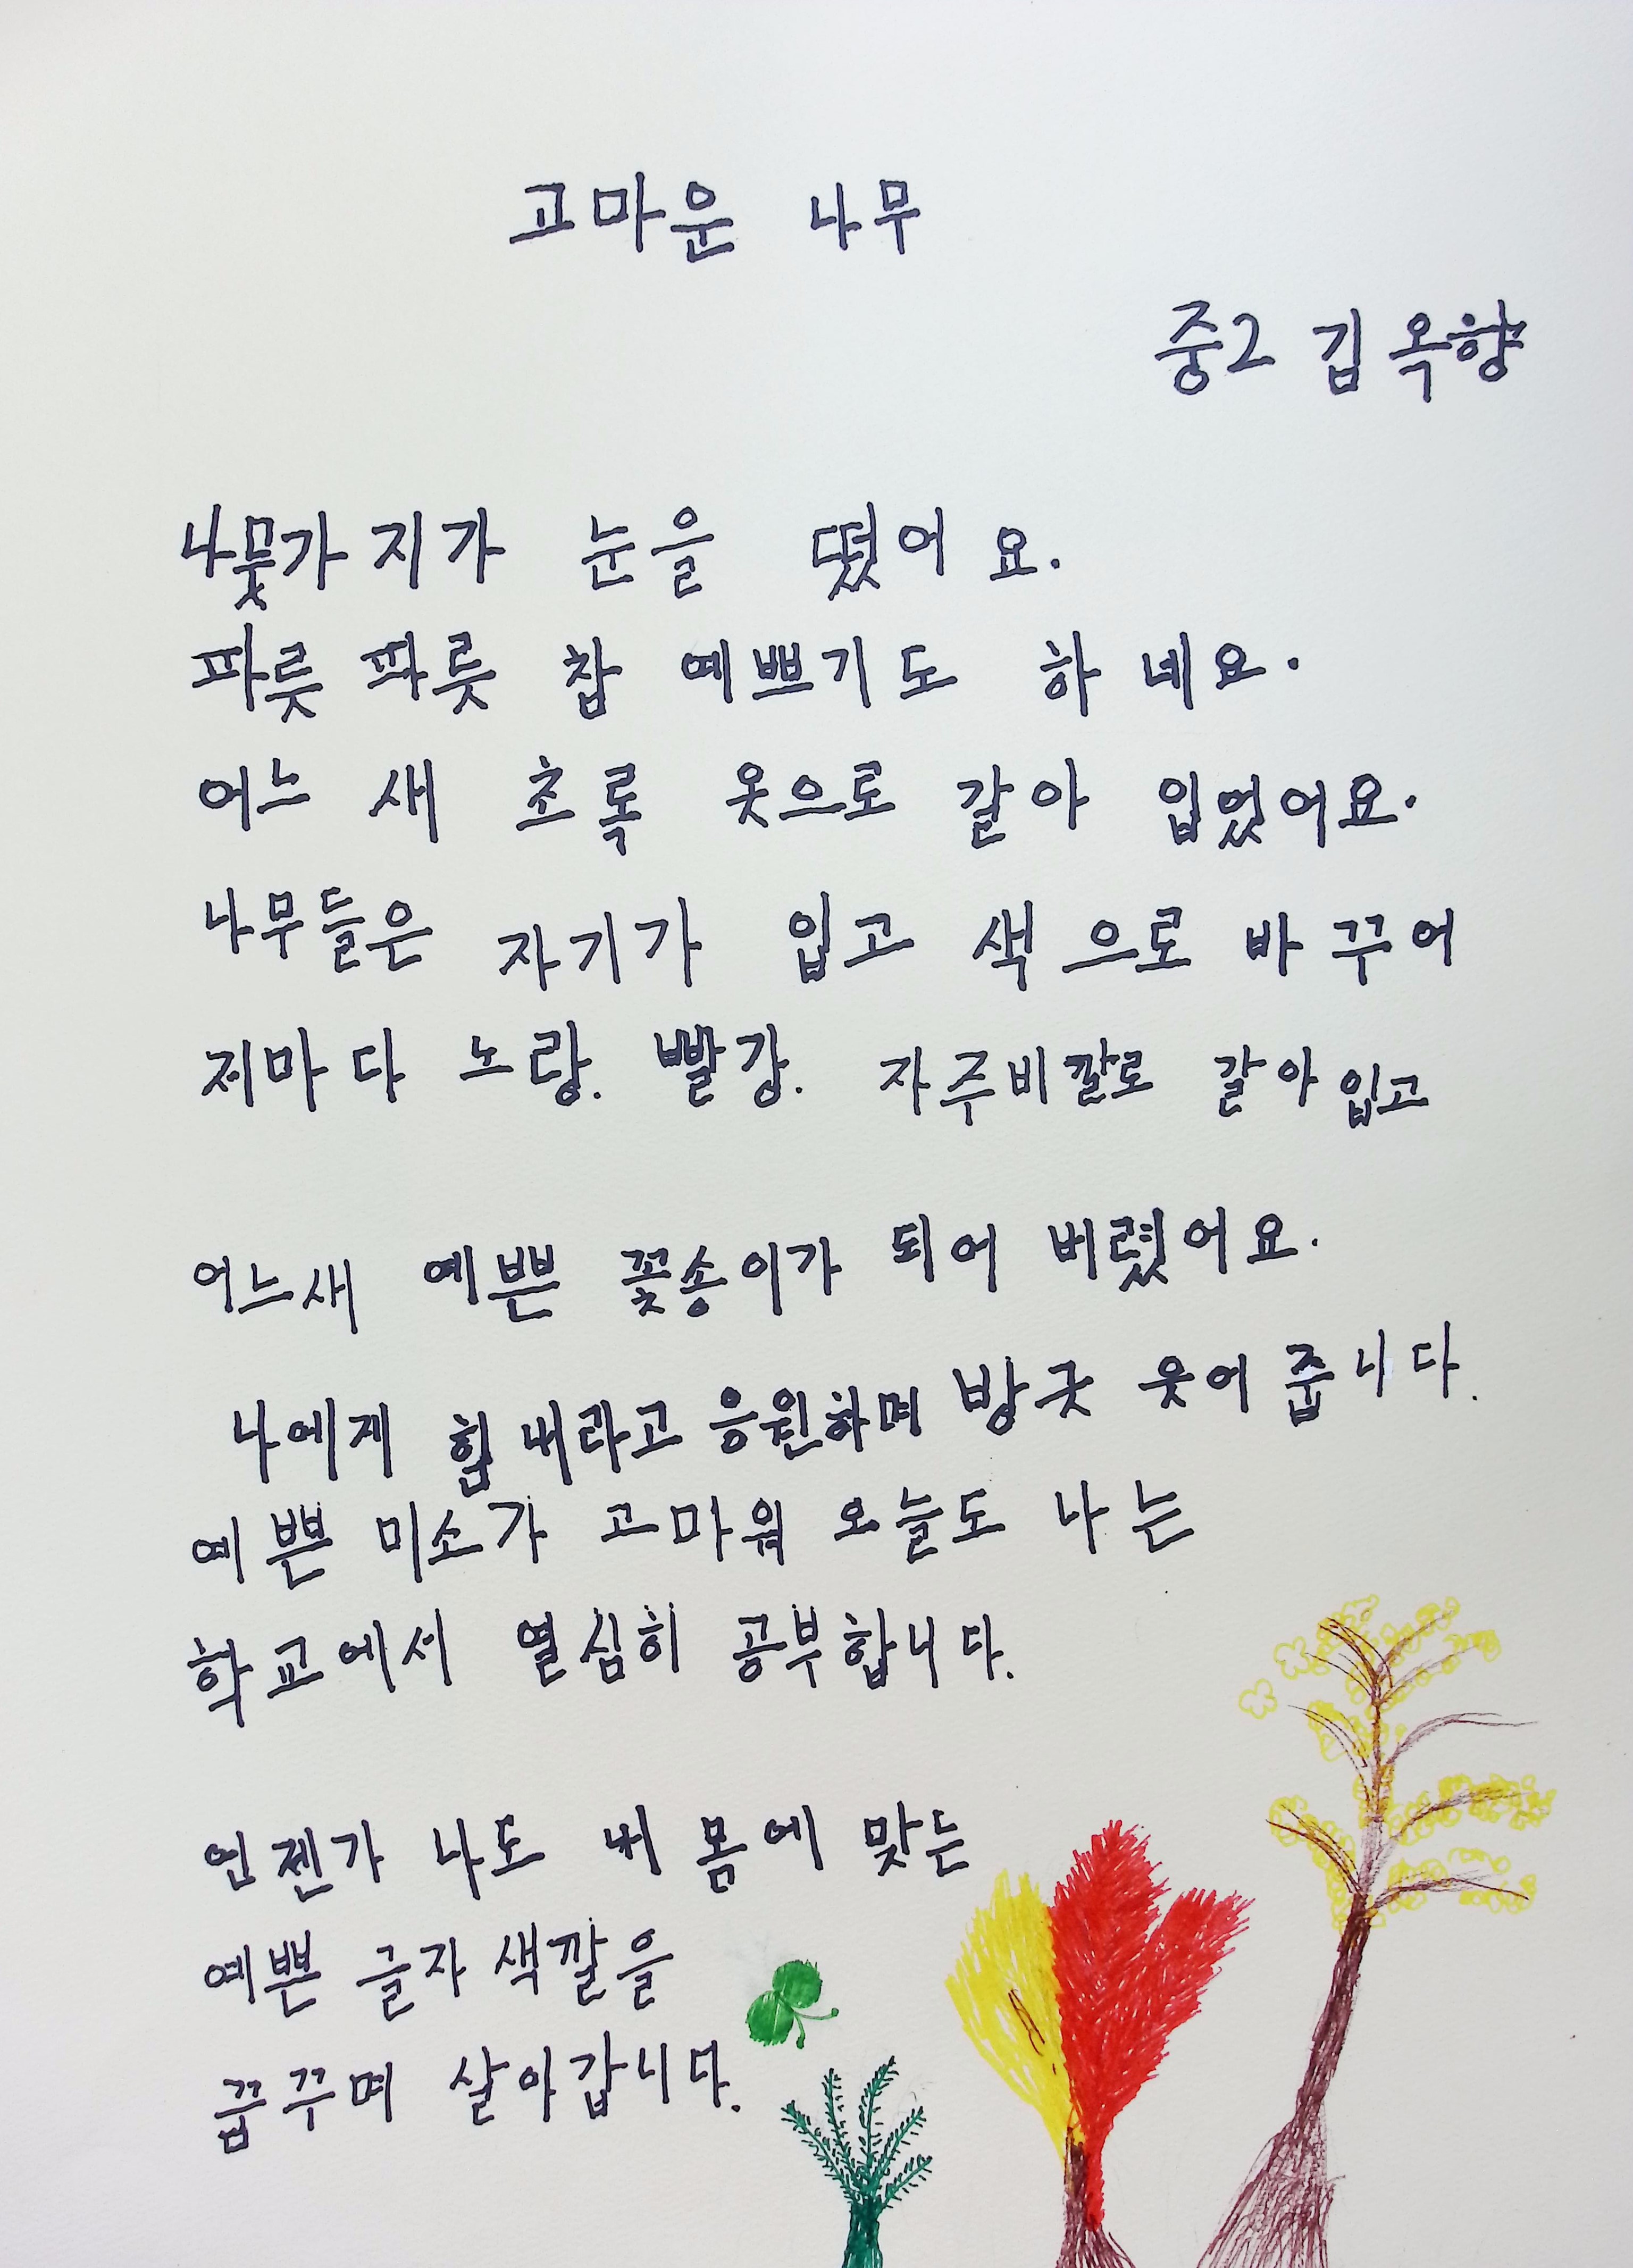 고마운 나무
중2 김옥향
나뭇가지가 눈을 떴어요.
파릇파릇 참 예쁘기도 하네요.
어느새 초록 옷으로 갈아 입었어요.
나무들은 자기가 입고 색으로 바꾸어
저마다 노랑. 빨강. 자주비깔로 갈아입고
어느새 예쁜 꽃송이가 되어 버렸어요.
나에게 힘내라고 응원하며 방긋 웃어 줍니다.
예쁜 미소가 고마워 오늘도 나는
학교에서 열심히 공부합니다.
언젠가 나도 내 몸에 맞는
예쁜 글자 색깔을
꿈꾸며 살아갑니다.